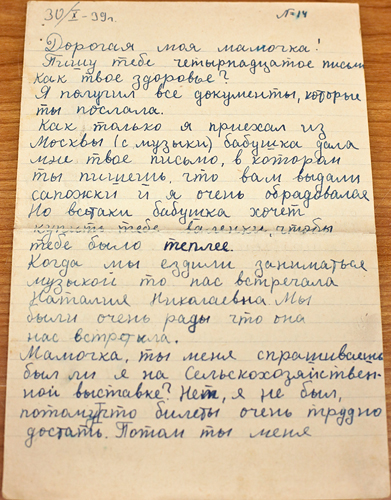 30/X-39г. № 14
Дорогая моя мамочка!
Пишу тебе четырнадцатое письмо
как твое здоровье?
Я получил все документы, которые
ты послала.
Как только я приехал из
Москвы (с музыки) бабушка дала
мне твое письмо, в котором
ты пишешь, что вам выдали
сапожки и я очень обрадовался
Но всетаки бабушка хочет
купить тебе валенки, чтобы
тебе было теплее.
Когда мы ездили заниматься
музыкой то нас встречала
Наталия Николаевна Мы
были очень рады что она
нас встретила.
Мамочка, ты меня спрашиваешь
был ли я на Сельскохозяйствен-
ной выставке? Нет, я не был,
потому что билеты очень трудно
достать. Потом ты меня